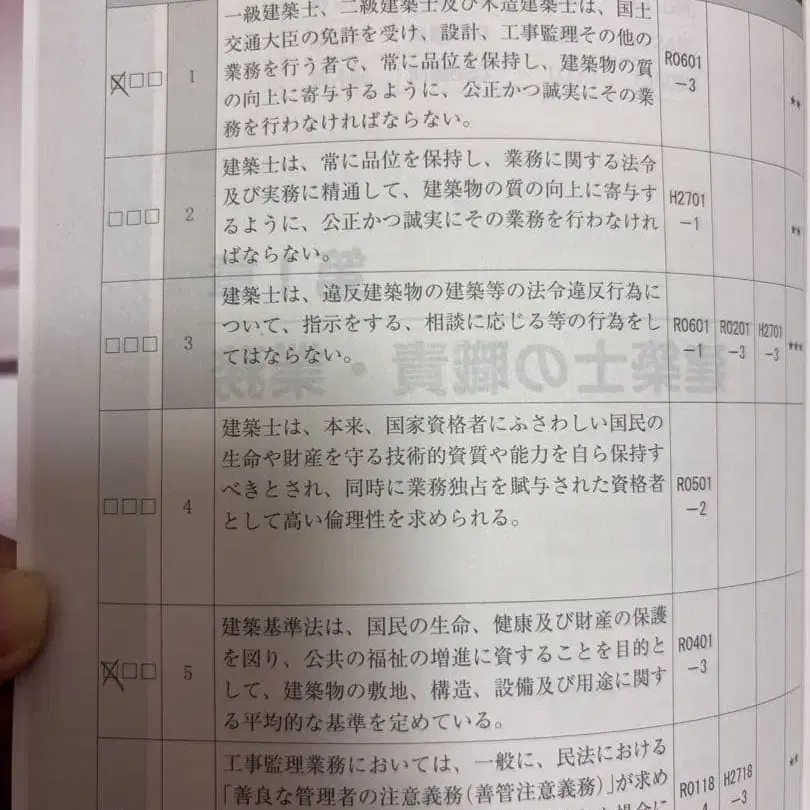 一級建築士、二級建築士及び木造建築士は、国土
交通大臣の免許を受け、設計、工事監理その他の
業務を行う者で、常に品位を保持し、建築物の質
の向上に寄与するように、公正かつ誠実にその業
務を行わなければならない。
□□□ 1 R0601
-3
★★
建築士は、常に品位を保持し、業務に関する法令
及び実務に精通して、建築物の質の向上に寄与す
るように、公正かつ誠実にその業務を行わなけれ
ばならない。
□□□ 2 H2701
-1
★★
建築士は、違反建築物の建築等の法令違反行為に
ついて、指示をする、相談に応じる等の行為をし
てはならない。
□□□ 3 R0601
-1
R0201
-3
H2701
-3
★★★
建築士は、本来、国家資格者にふさわしい国民の
生命や財産を守る技術的資質や能力を自ら保持す
べきとされ、同時に業務独占を賦与された資格者
として高い倫理性を求められる。
□□□ 4 R0501
-2
建築基準法は、国民の生命、健康及び財産の保護
を図り、公共の福祉の増進に資することを目的と
して、建築物の敷地、構造、設備及び用途に関す
る平均的な基準を定めている。
□□□ 5 R0401
-3
工事監理業務においては、一般に、民法における
「善良な管理者の注意義務(善管注意義務)」が求め
R0118
-4
H2718
-3
★★
第1章
建築士の職責・業務